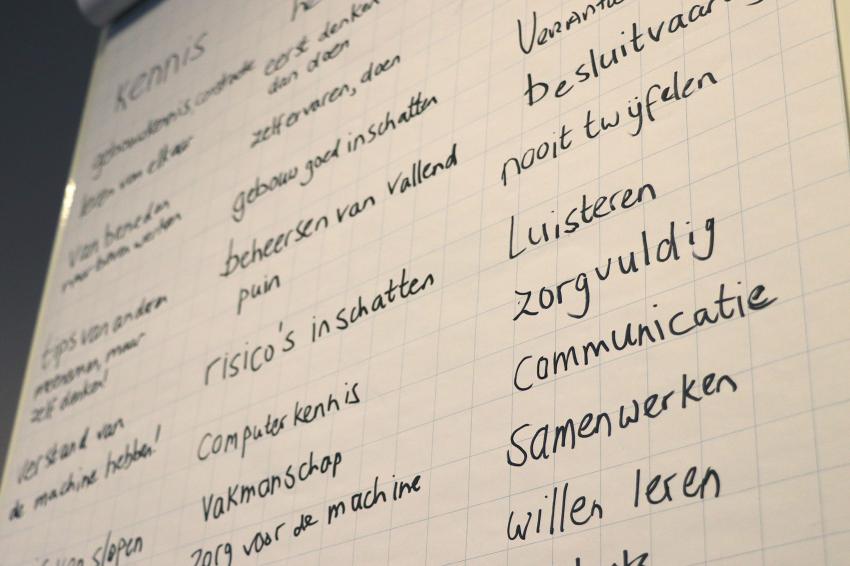 kennis
gebouwkennis, constructie
leren van elkaar
van beneden
naar boven werken
tips van anderen
meenemen, maar
zelf denken!
verstand van
de machine hebben!
slopen
eerst denken
dan doen
zelf ervaren, doen
gebouw goed inschatten
beheersen van vallend
puin
risico's inschatten
computerkennis
vakmanschap
zorg voor de machine
besluitvaar
nooit twijfelen
Luisteren
zorgvuldig
Communicatie
Samenwerken
willen leren